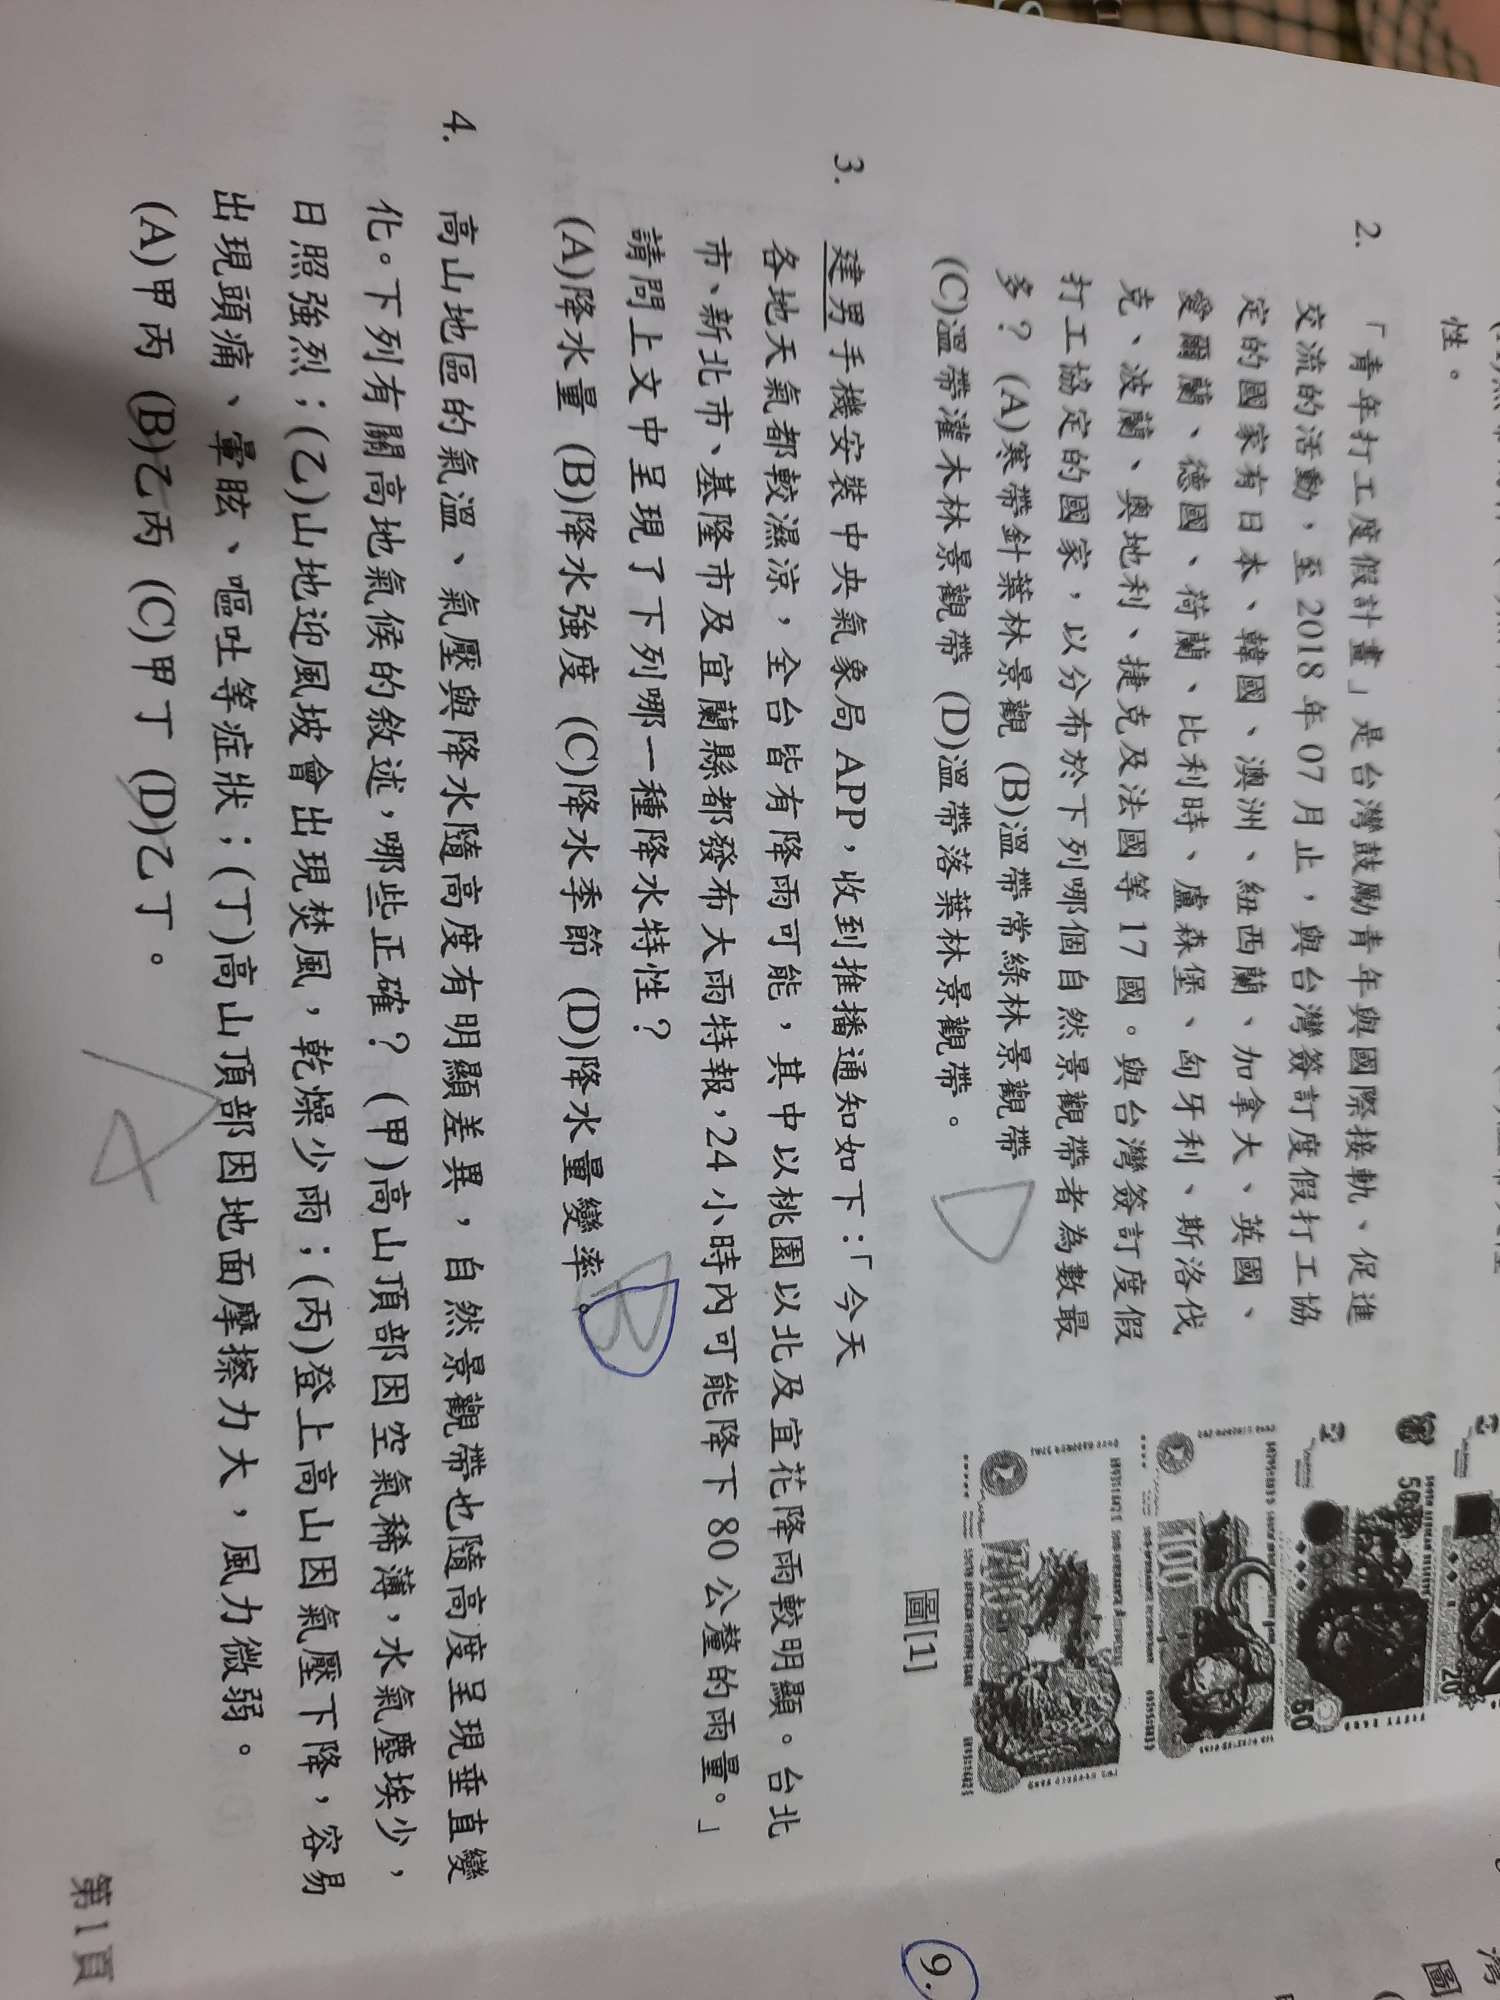 性。
2. 「青年打工度假計畫」是台灣鼓勵青年與國際接軌、促進
交流的活動，至2018年07月止，與台灣簽訂度假打工協
定的國家有日本、韓國、澳洲、紐西蘭、加拿大、英國、
愛爾蘭、德國、荷蘭、比利時、盧森堡、匈牙利、斯洛伐
克、波蘭、奧地利、捷克及法國等17國。與台灣簽訂度假
打工協定的國家，以分布於下列哪個自然景觀帶者為數最
多？(A)寒帶針葉林景觀 (B)溫帶常綠林景觀帶
(C)溫帶灌木林景觀帶 (D)溫帶落葉林景觀帶。
D
50
20
50
100
200
圖[1]
3. 建男手機安裝中央氣象局APP，收到推播通知如下：「今天
各地天氣都較濕涼，全台皆有降雨可能，其中以桃園以北及宜花降雨較明顯。台北
市、新北市、基隆市及宜蘭縣都發布大雨特報，24小時內可能降下80公釐的雨量。」
請問上文中呈現了下列哪一種降水特性？
(A)降水量 (B)降水強度 (C)降水季節 (D)降水量變率。
B
4. 高山地區的氣溫、氣壓與降水隨高度有明顯差異，自然景觀帶也隨高度呈現垂直變
化。下列有關高地氣候的敘述，哪些正確？(甲)高山頂部因空氣稀薄，水氣塵埃少，
日照強烈；(乙)山地迎風坡會出現焚風，乾燥少雨；(丙)登上高山因氣壓下降，容易
出現頭痛、暈眩、嘔吐等症狀；(丁)高山頂部因地面摩擦力大，風力微弱。
(A)甲丙 (B)乙丙 (C)甲丁 (D)乙丁。
A
第1頁
9.
圖